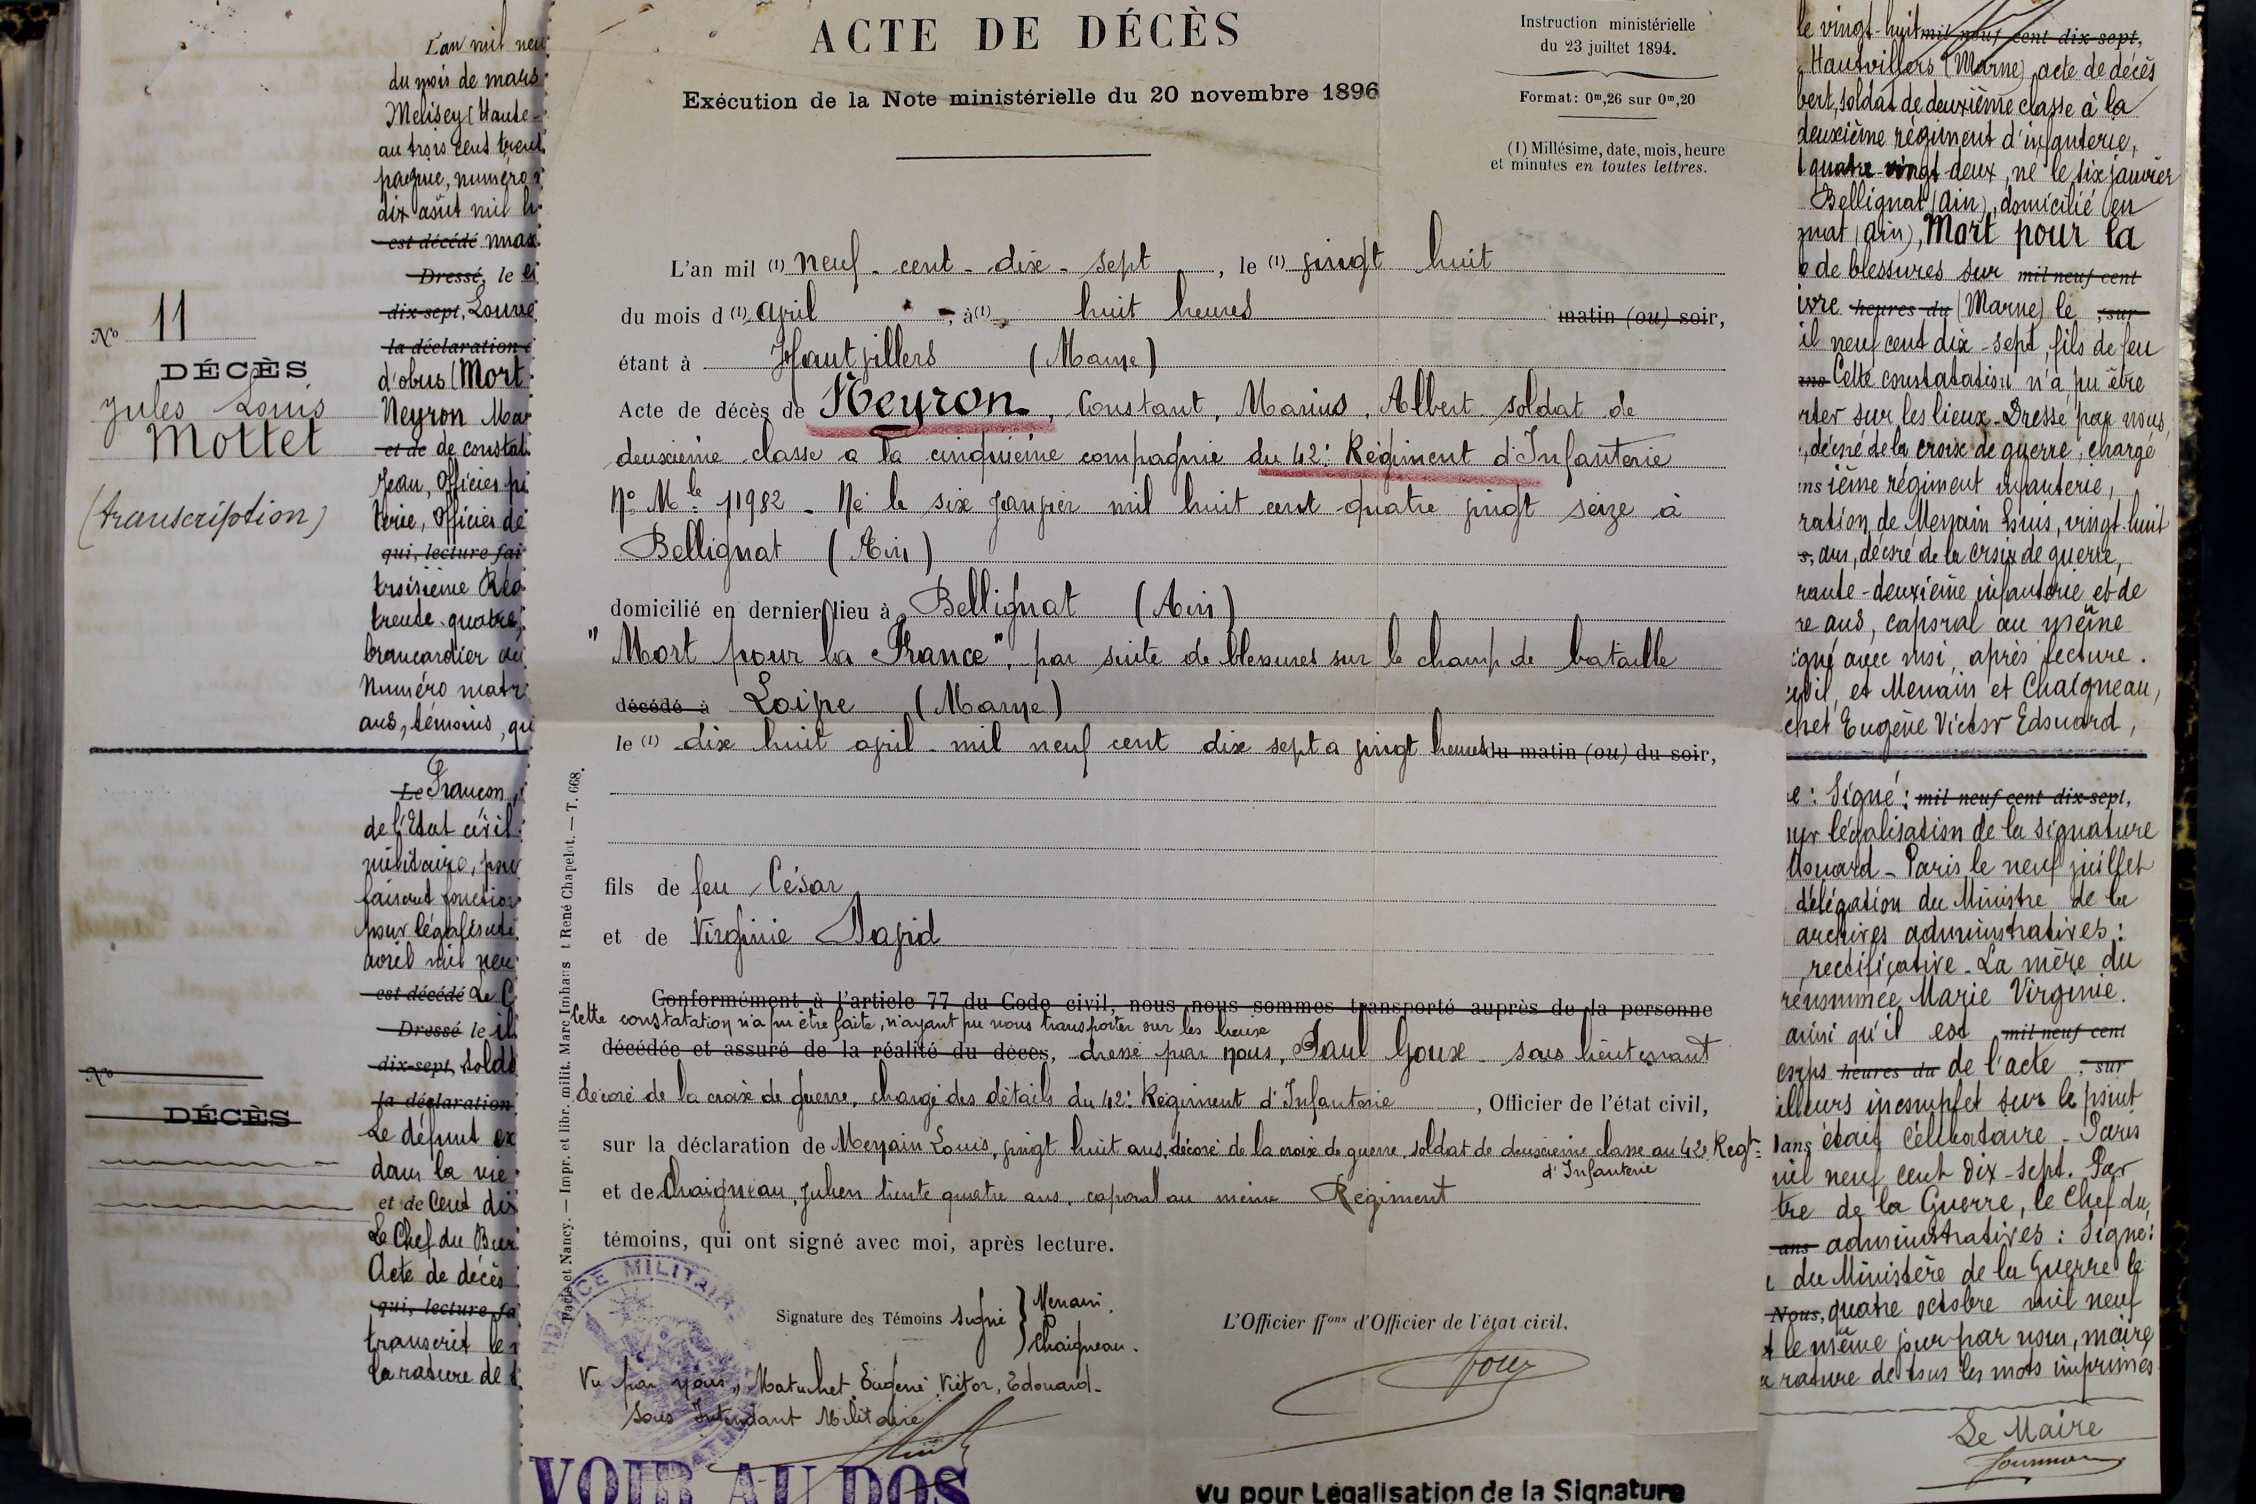 L'an mil neu
du mois de mars
Melisey (Haute-
au trois cent trent
pagnie, numéro
dix août mil h
est décédé
Dressé, le
dix-sept, Louvre
la déclaration
d'obus (Mort
Neyron Mar
et de de constat
Jean, Officier
terie, Officier de
qui, lecture fai
troisième Rég
trente-quatre
brancardier du
Numéro matr
ans, témoins, qu
N° 11
DÉCÈS
Jules Louis
Mottet
(transcription)
Le Françon,
de l'Etat civil
militaire, pou
faisant fonction
pour légalisati
avril mil neu
est décédé Le C
Dressé le
dix-sept, solda
la déclaration
Le défunt
dans la vie
et de Cent dix
Le Chef du Bur
Acte de décès
qui, lecture fa
transcrit le
la rature de
N°
DÉCÈS
ACTE DE DÉCÈS
Exécution de la Note ministérielle du 20 novembre 1896
Instruction ministérielle
du 23 juillet 1894.
Format: 0m,26 sur 0m,20
(1) Millésime, date, mois, heure
et minutes en toutes lettres.
L'an mil (1) neuf-cent-dix-sept, le (1) vingt huit
du mois d (1) avril, à (1) huit heures matin (ou) soir,
étant à Hautvillers (Marne)
Acte de décès de Neyron, Constant, Marius, Albert soldat de
deuxième classe à la cinquième compagnie du 42e Régiment d'Infanterie
No Mle 11982 - Né le six janvier mil huit cent quatre vingt seize à
Bellignat (Ain)
domicilié en dernier lieu à Bellignat (Ain)
"Mort pour la France", par suite de blessures sur le champ de bataille
décédé à Loivre (Marne)
le (1) dix huit avril mil neuf cent dix sept a vingt heures du matin (ou) du soir,
fils de feu César
et de Virginie David
Conformément à l'article 77 du Code civil, nous nous sommes transporté auprès de la personne
Cette constatation n'a pu être faite, n'ayant pu nous transporter sur les lieux
décédée et assuré de la réalité du décès, dressé par nous, Paul Goux sous lieutenant
décoré de la croix de guerre, chargé des détails du 42e Régiment d'Infanterie, Officier de l'état civil,
sur la déclaration de Menain Louis, vingt huit ans, décoré de la croix de guerre, soldat de deuxième classe au 42e Regt
d'Infanterie
et de Chaigneau, Julien trente quatre ans, caporal au même Régiment
témoins, qui ont signé avec moi, après lecture.
Signature des Témoins signé } Menain.
Chaigneau.
L'Officier ffons d'Officier de l'état civil.
Goux
Vu par nous, Matuchet Eugène Victor, Edouard-
Sous Intendant Militaire
INTENDANCE MILITAIRE
VOIR AU DOS
Vu pour Légalisation de la Signature
Paris et Nancy. — Impr. et libr. milit. Marc Imhaus et René Chapelot. — T. 668.
le vingt-huit mil neuf cent dix-sept,
Hautvillers (Marne) acte de décès
bert, soldat de deuxième classe à la
deuxième régiment d'infanterie,
quatre-vingt deux, né le six janvier
Bellignat (Ain), domicilié en
gnat (Ain), Mort pour la
e de blessures sur mil neuf cent
ivre heures du (Marne) le , sur
il neuf cent dix-sept, fils de feu
Cette constatation n'a pu être
rter sur les lieux - Dressé par nous,
, décoré de la croix de guerre, chargé
ième régiment infanterie,
ration de Menain Louis, vingt-huit
s, ans, décoré de la croix de guerre,
rante-deuxième infanterie et de
re ans, caporal au même
igné avec moi, après lecture.
civil, et Menain et Chaigneau,
chet Eugène Victor Edouard,
e: Signé: mil neuf cent dix-sept,
our légalisation de la signature
douard - Paris le neuf juillet
délégation du Ministre de la
archives administratives:
rectificative - La mère du
rénommée Marie Virginie.
ainsi qu'il est mil neuf cent
corps heures du de l'acte , sur
illeurs incomplet sur le point
dans était célibataire - Paris
mil neuf cent dix-sept. Par
tre de la Guerre, le Chef du
ans administratives: Signé:
du Ministère de la Guerre le
Nous, quatre octobre mil neuf
le même jour par nous, maire
rature de tous les mots imprimés
Le Maire